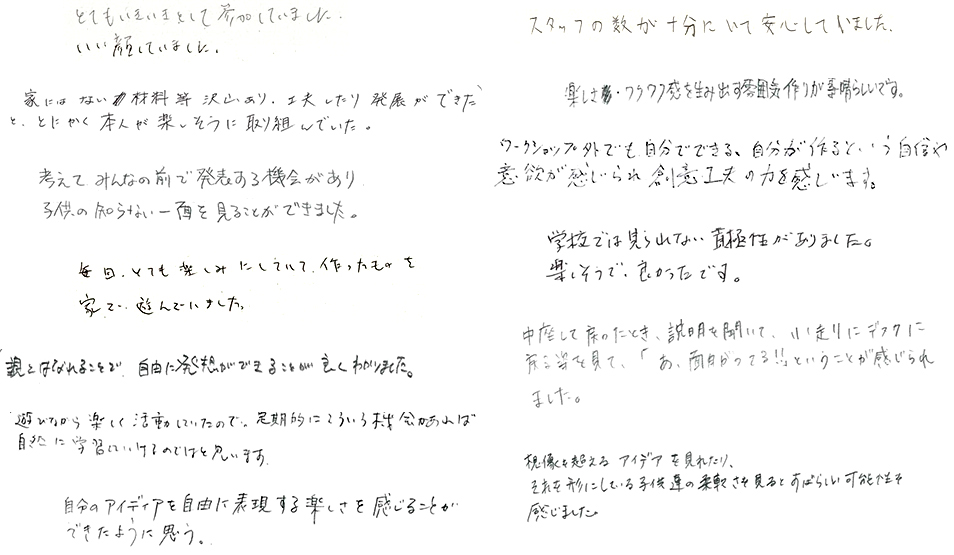 とてもいきいきとして参加していました。
いい顔していました。
家にはない材料等沢山あり、工夫したり発展ができた
と、とにかく本人が楽しそうに取り組んでいた。
考えてみんなの前で発表する機会があり
子供の知らない一面を見ることができました。
毎日、とても楽しみにしていて、作ったものを
家で、遊んでいました。
親とはなれることで、自由に発想ができることが良くわかりました。
遊びながら楽しく活動していたので、定期的にこういう機会があれば
自然に学習していけるのではと思います。
自分のアイディアを自由に表現する楽しさを感じることが
できたように思う。
スタッフの数が十分にいて安心していました。
楽しさ・ワクワク感を生み出す雰囲気作りが素晴らしいです。
ワークショップ外でも自分でできる、自分が作るという自信や
意欲が感じられ創意工夫の力を感じます。
学校では見られない積極性がありました。
楽しそうで、良かったです。
中座して戻ったとき、説明を聞いて、小走りにデスクに
戻る姿を見て、「あ、面白がってる!!」ということが感じられ
ました。
想像を超えるアイデアを見れたり、
それを形にしている子供達の柔軟さを見るとすばらしい可能性を
感じました。